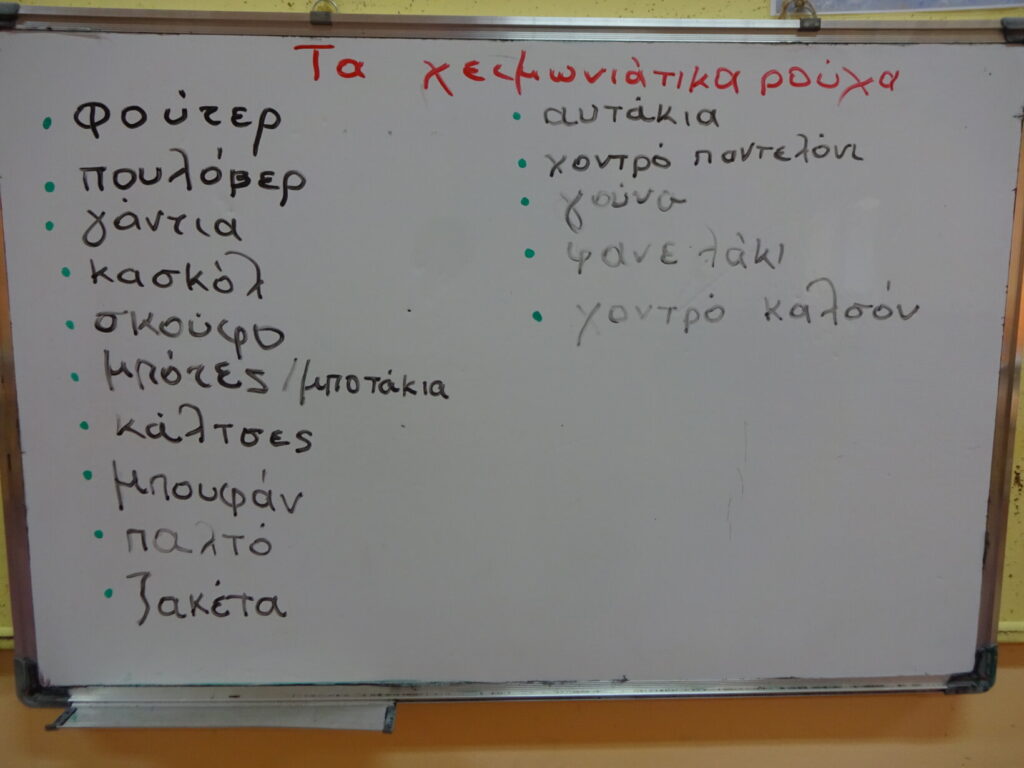 Τα χειμωνιάτικα ρούχα
φούτερ
πουλόβερ
γάντια
κασκόλ
σκούφο
μπότες/μποτάκια
κάλτσες
μπουφάν
παλτό
ζακέτα
αυτάκια
χοντρό παντελόνι
γούνα
φανελάκι
χοντρό καλσόν